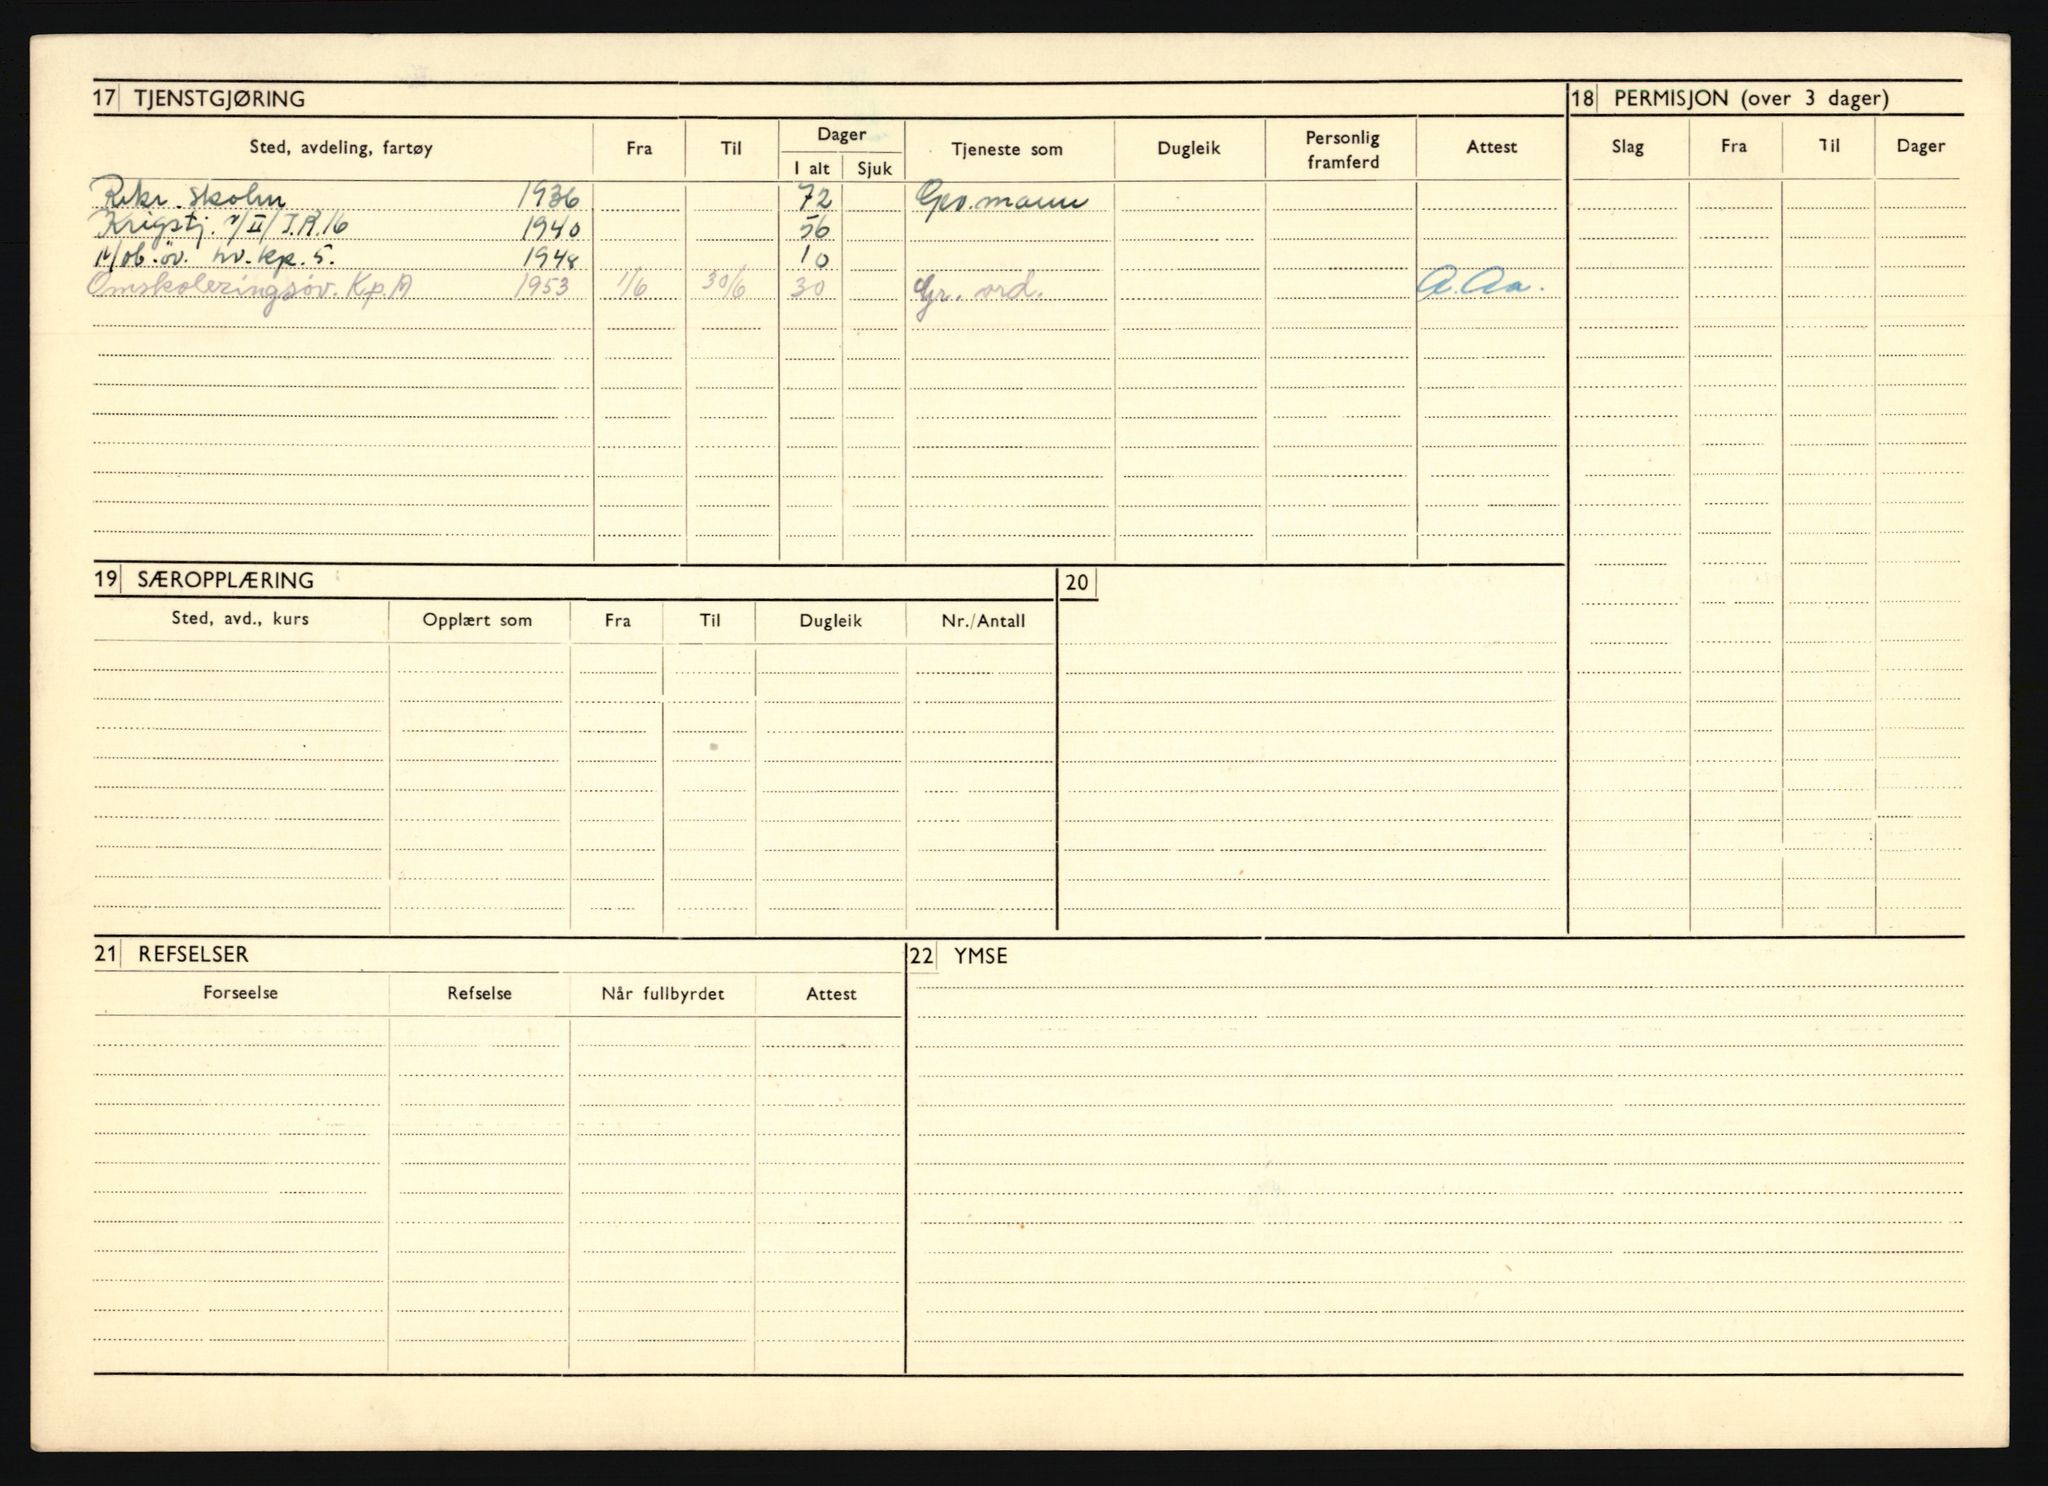 17 TJENSTGJØRING
18 PERMISJON (over 3 dager)
Sted, avdeling, fartøy Fra Til Dager I alt Sjuk Tjeneste som Dugleik Personlig framferd Attest
Slag Fra Til Dager
Rekr. skolen 1936 72 Gev.mann
Krigstj. /II/I.R.16 1940 56
øv. hv. kp. 5. 1948 10
Omskoleringsøv. Kp. A 1953 1/6 30/6 30 Gr. ord. A. Aa.
19 SÆROPPLÆRING
20
Sted, avd., kurs Opplært som Fra Til Dugleik Nr./Antall
21 REFSELSER
22 YMSE
Forseelse Refselse Når fullbyrdet Attest